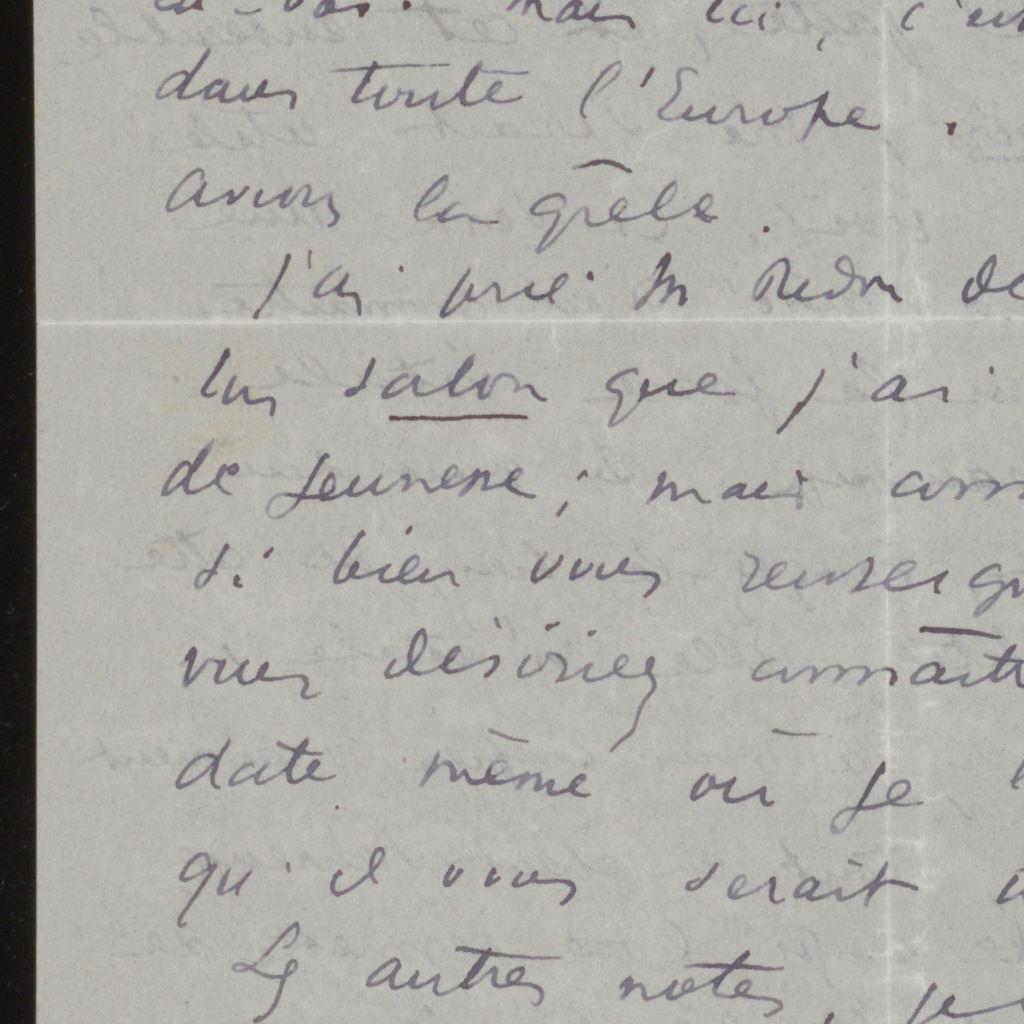 là-bas. Mais ici, c'est
dans toute l'Europe.
avions la grêle.
J'ai prié M Redon de
les salon que j'ai
de jeunesse ; mais
si bien vous renseign
vous désiriez connaîtr
date même où je
qu'il vous serait
Les autres notes, je